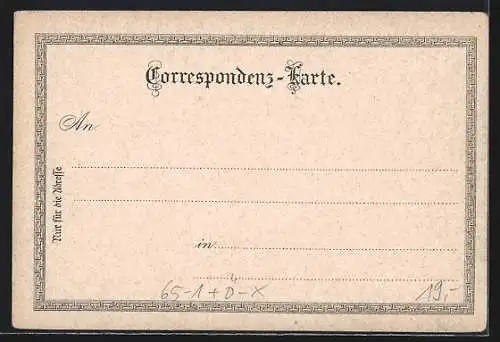 Correspondenz-Karte.
An
Nur für die Adresse
in
65-1+Ö-X
19,-